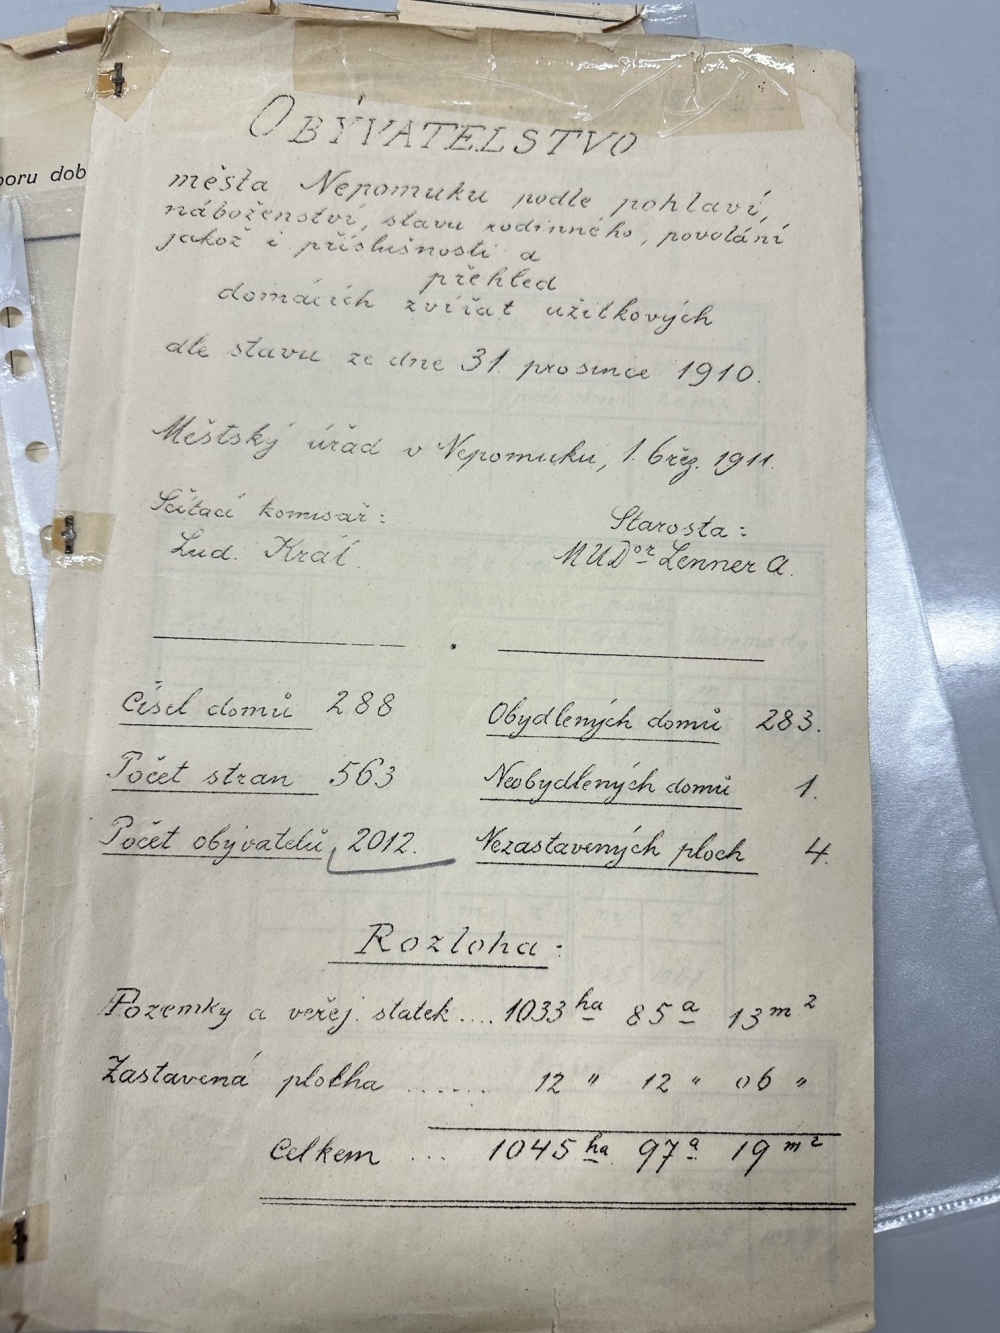 oru dob
OBÝVATELSTVO
města Nepomuku podle pohlaví,
náboženství, stavu rodinného, povolání
jakož i příslušnosti a
přehled
domácích zvířat užitkových
dle stavu ze dne 31. prosince 1910.
Městský úřad v Nepomuku, 1. břez. 1911.
Sčítací komisař:
Starosta:
Lud. Král.
MUDor Lenner A.
Čísel domů 288
Obydlených domů 283.
Počet stran 563
Neobydlených domů 1.
Počet obyvatelů 2012.
Nezastavených ploch 4.
Rozloha:
Pozemky a veřej. statek .... 1033 ha 85 a 13 m²
Zastavená plocha ...... 12 " 12 " 06 "
Celkem ... 1045 ha 97 a 19 m²